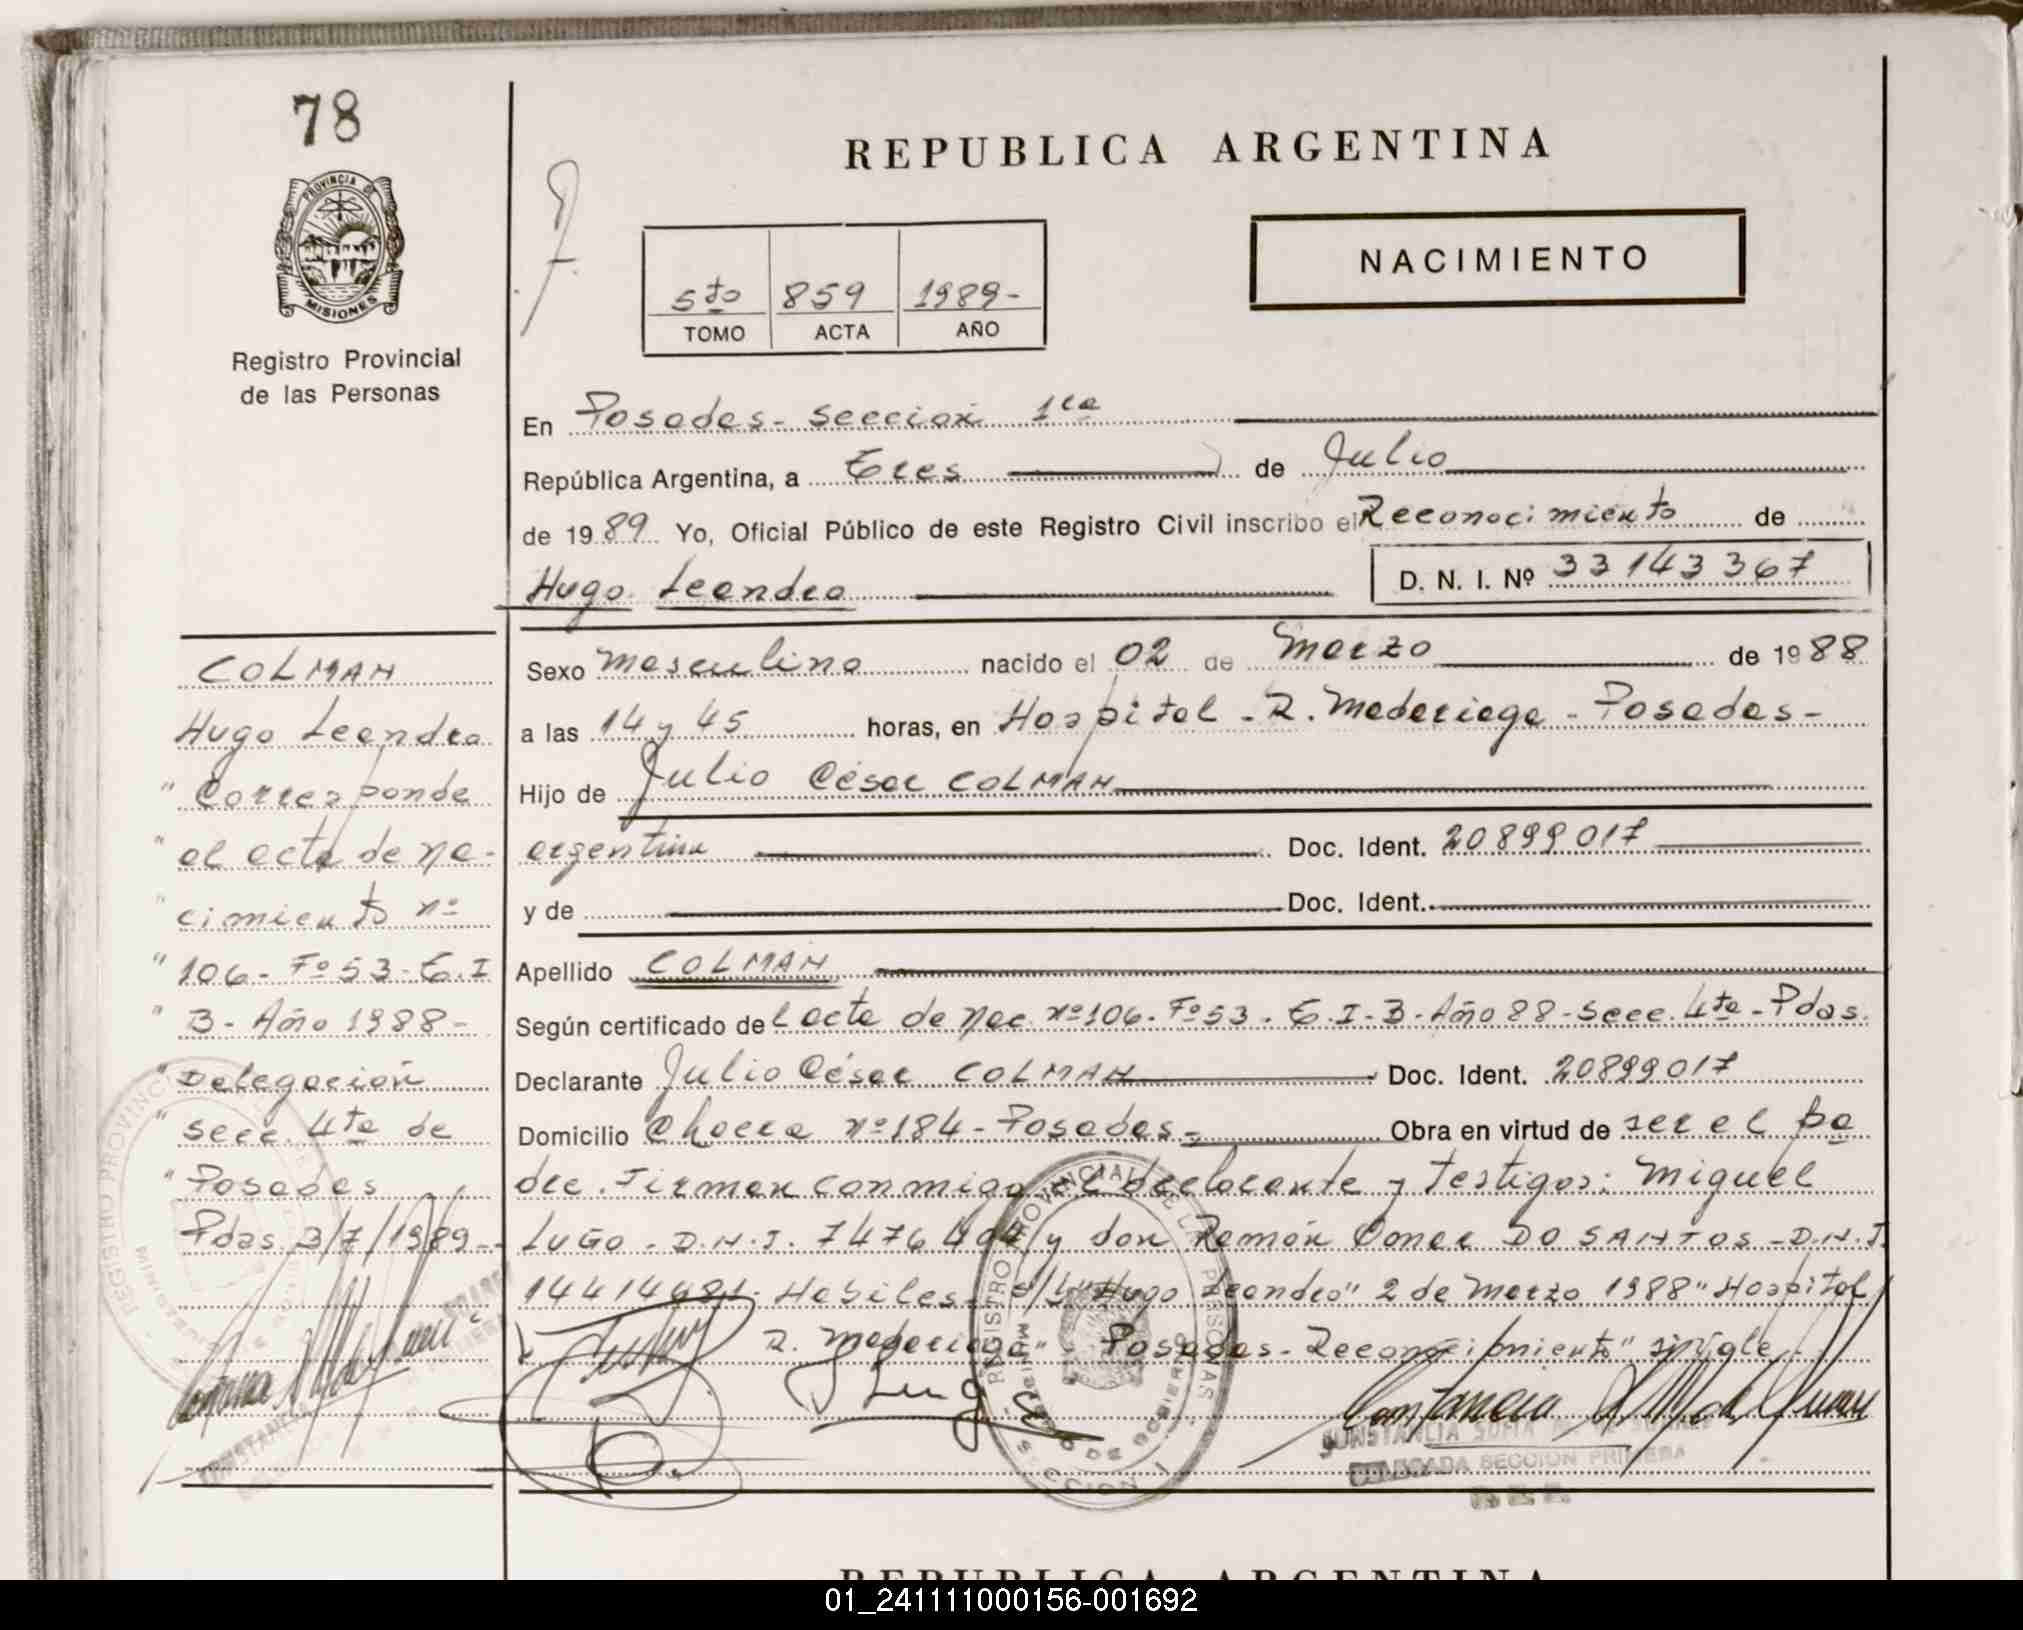 78
PROVINCIA DE
MISIONES
Registro Provincial
de las Personas
REPUBLICA ARGENTINA
NACIMIENTO
5to 859 1989-
TOMO ACTA AÑO
En Posadas - Sección 1ra
República Argentina, a Tres de Julio
de 1989 Yo, Oficial Público de este Registro Civil inscribo el Reconocimiento de
Hugo Leandro D. N. I. Nº 33143367
COLMAN
Hugo Leandro
" Corresponde
" al acta de na-
" cimiento nº
" 106 - Fº 53 - T. I
" B - Año 1988 -
" Delegación
" Secc. 4ta de
" Posadas
Pdas. 3/7/1989 -
Sexo masculino nacido el 02 de Marzo de 1988
a las 14 y 45 horas, en Hospital - R. Madariaga - Posadas -
Hijo de Julio César COLMAN
argentina Doc. Ident. 20899017
y de Doc. Ident.
Apellido COLMAN
Según certificado del acta de nac. nº 106. Fº 53. T. I - B - Año 88 - Secc. 4ta - Pdas.
Declarante Julio César COLMAN Doc. Ident. 20899017
Domicilio Chacra nº 184 - Posadas - Obra en virtud de ser el pa
dre. Firman conmigo el declarante y testigos: Miguel
LUGO - D.N.I. 7476404 y don Ramón Omar DO SANTOS - D.N.I.
14414481 - Hábiles - s/b "Hugo Leandro" 2 de Marzo 1988 "Hospital
R. Madariaga" Posadas - Reconocimiento"
REGISTRO PROVINCIAL DE LAS PERSONAS
MINISTERIO DE GOBIERNO
SECCION I
DELEGADA SECCION PRIMERA
REPUBLICA ARGENTINA
01_241111000156-001692